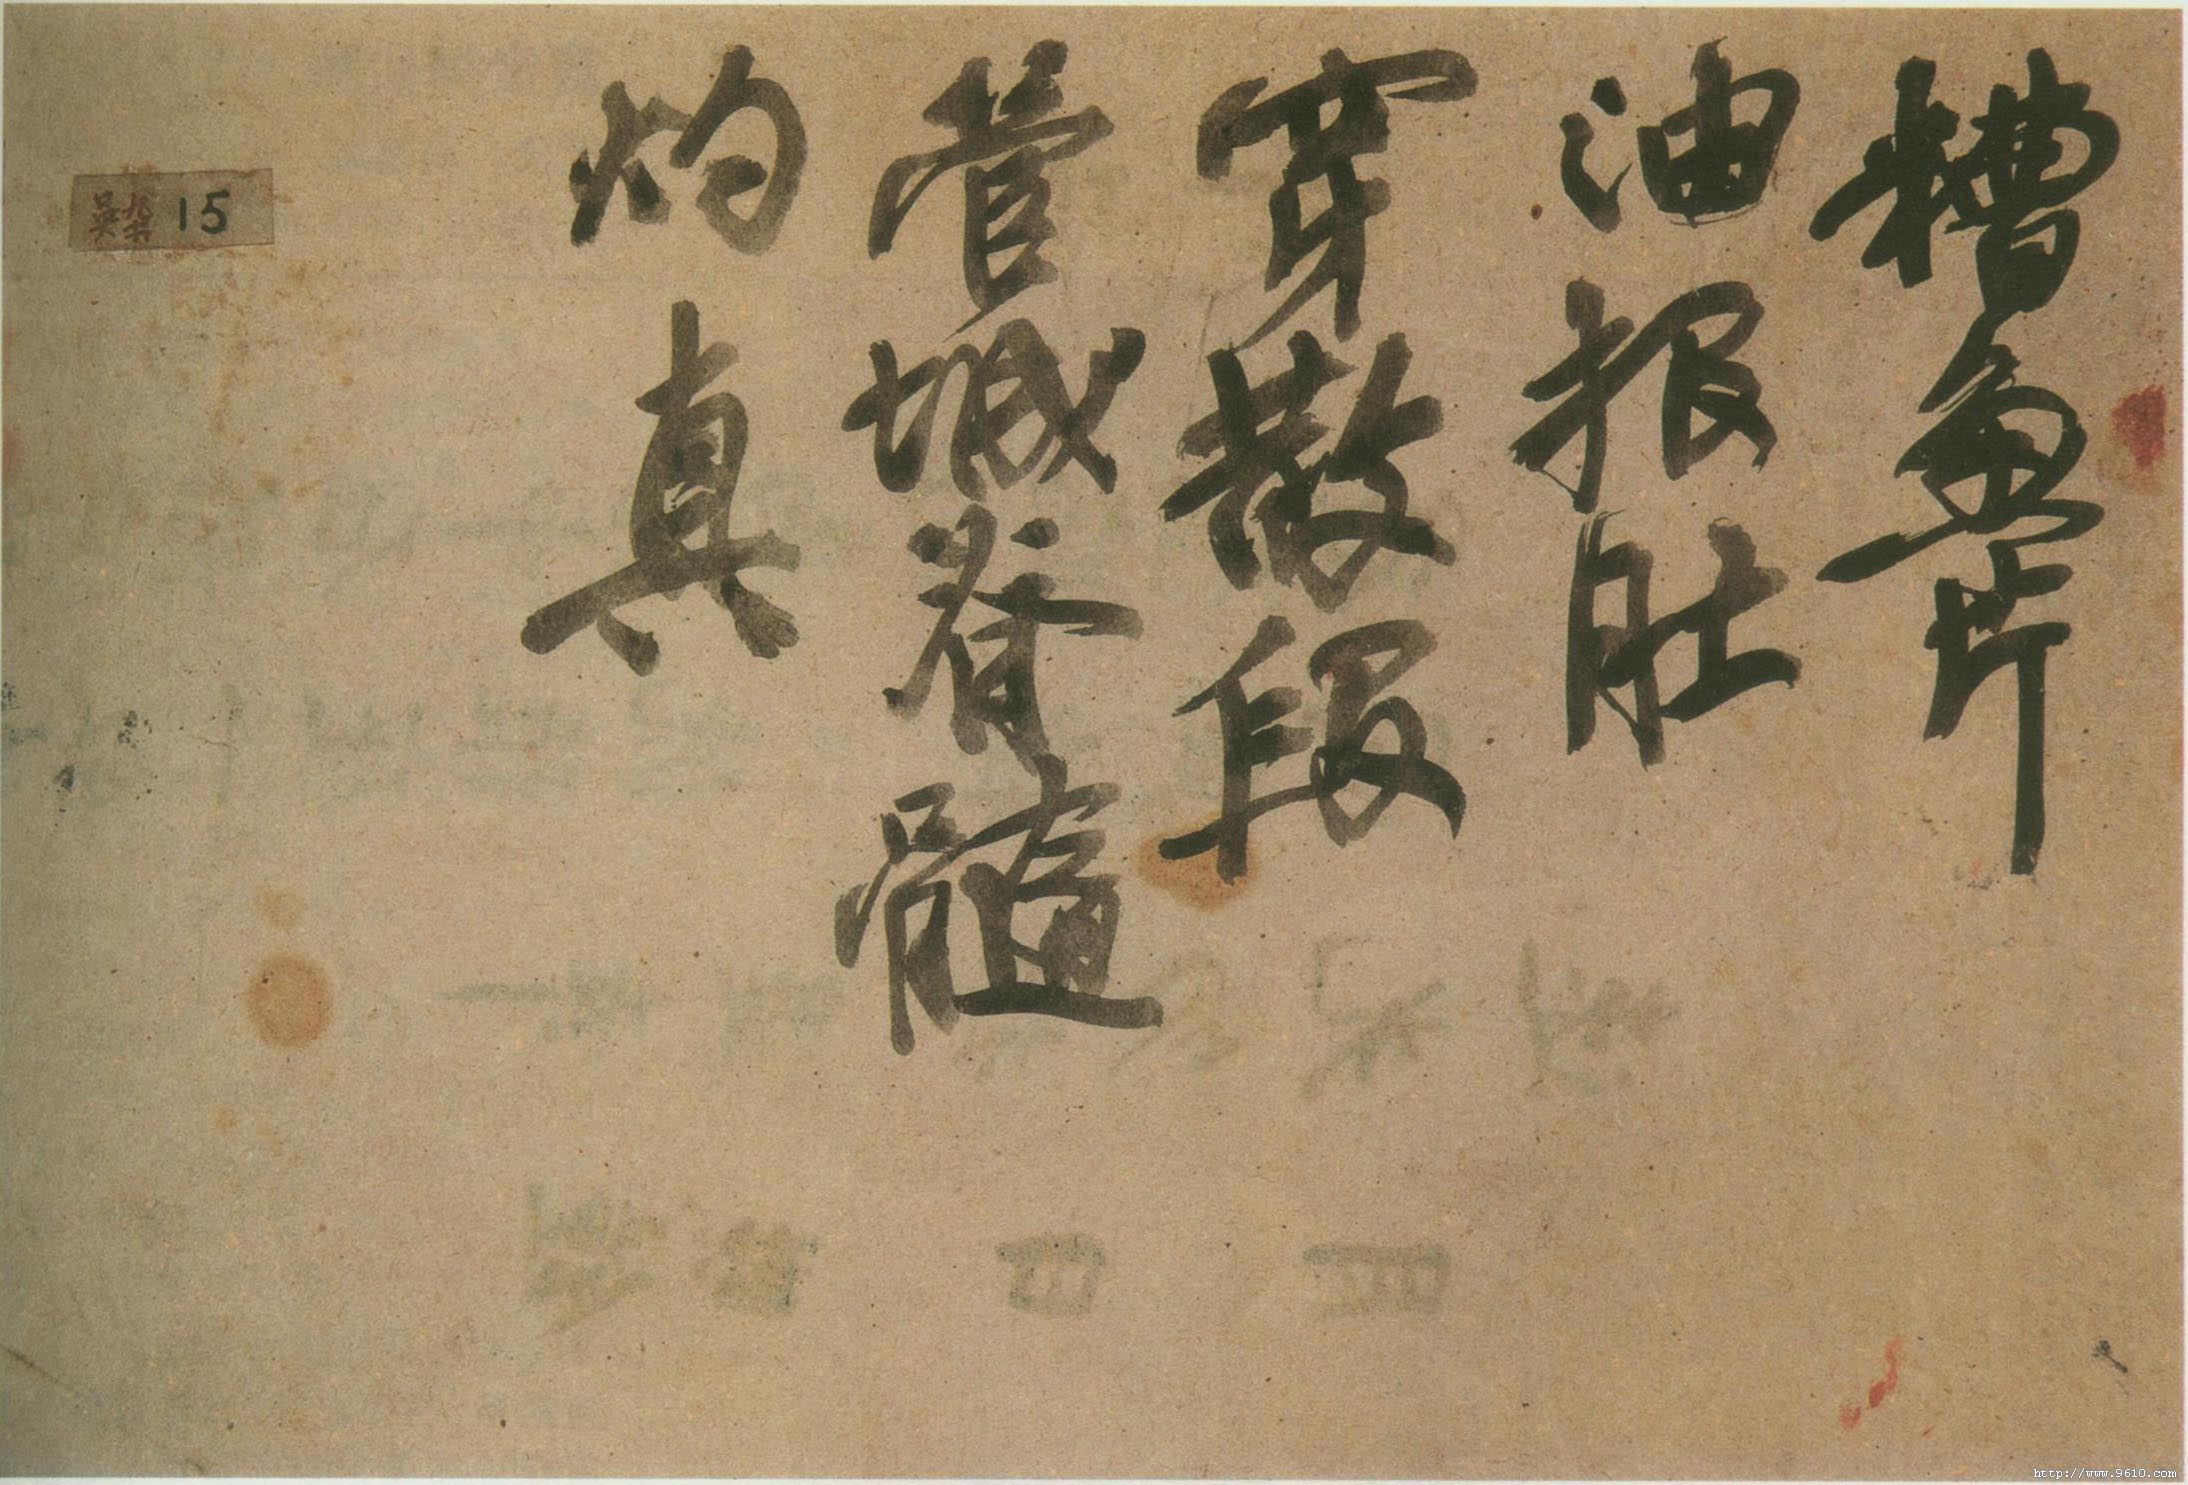 糟魚片
油报肚
穿散段
管城脊髓
灼真
15
http://www.9610.com